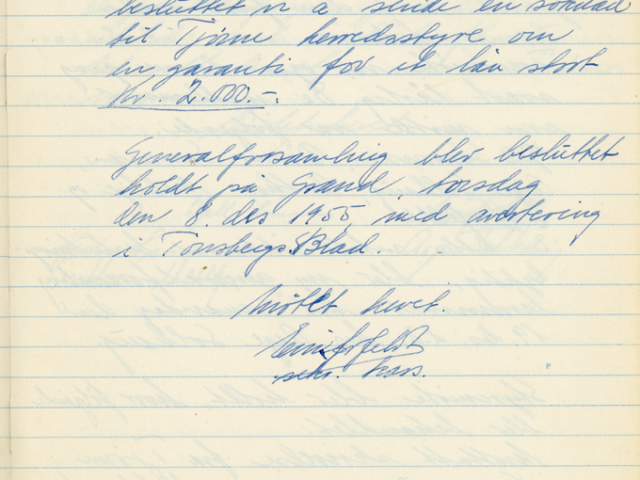 besluttet vi å sende en søknad
til Tjøme herredsstyre om
en garanti for et lån stort
Kr. 2.000.-.
Generalforsamling blev besluttet
holdt på Grand torsdag
den 8 des 1955 med avertering
i Tønsbergs Blad.
Møtet hevet.
sekr. kass.